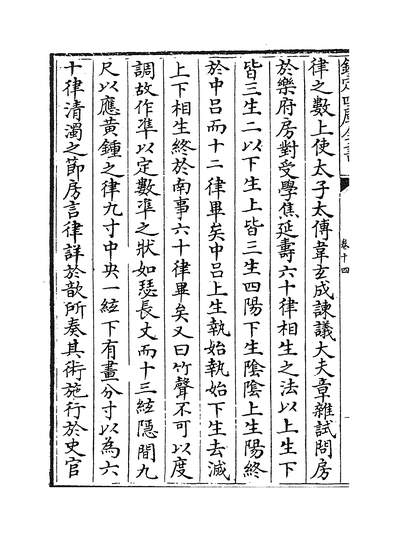 欽定四庫全書
卷十四
律之數上使太子太傅韋玄成諫議大夫章雜試問房
於樂府房對受學焦延壽六十律相生之法以上生下
皆三生二以下生上皆三生四陽下生陰陰上生陽終
於中呂而十二律畢矣中呂上生執始執始下生去滅
上下相生終於南事六十律畢矣又曰竹聲不可以度
調故作準以定數準之狀如瑟長丈而十三絃隱間九
尺以應黃鍾之律九寸中央一絃下有畫分寸以為六
十律清濁之節房言律詳於歆所奏其術施行於史官